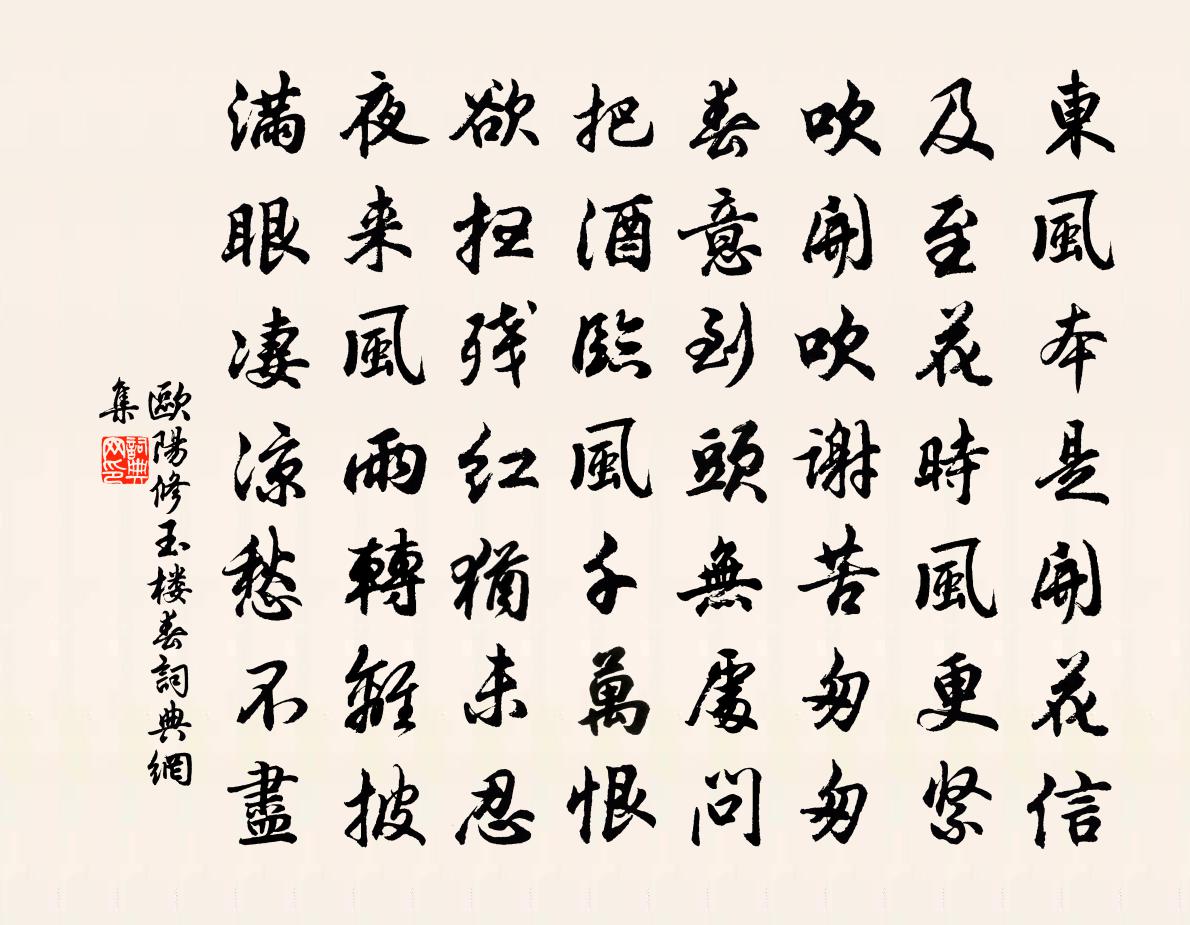 東風本是開花信
及至花時風更緊
吹開吹謝苦匆匆
春意到頭無處問
把酒臨風千萬恨
欲扫残红猶未忍
夜来風雨轉離披
满眼凄凉愁不盡
歐陽修玉楼春詞典網
集
詞典
网印